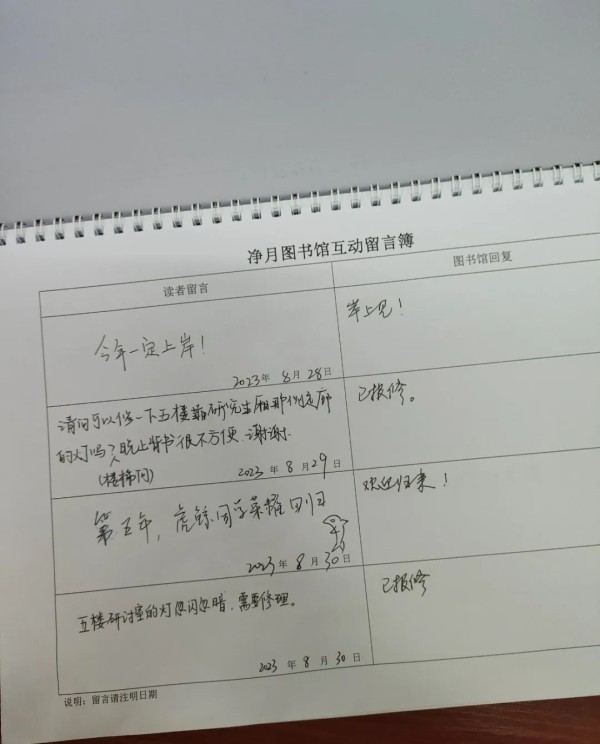 净月图书馆互动留言簿
读者留言
图书馆回复
今年一定上岸！
2023年 8月 28日
岸上见！
请问可以修一下五楼靠研究生厢那侧走廊
的灯吗？晚上背书很不方便 谢谢.
(楼梯间)
2023年 8月 29日
已报修。
第五年，虎鲸同学荣耀回归
2023年 8月 30日
欢迎归来！
五楼研讨室的灯忽闪忽暗，需要修理。
2023年 8月 30日
已报修
说明：留言请注明日期